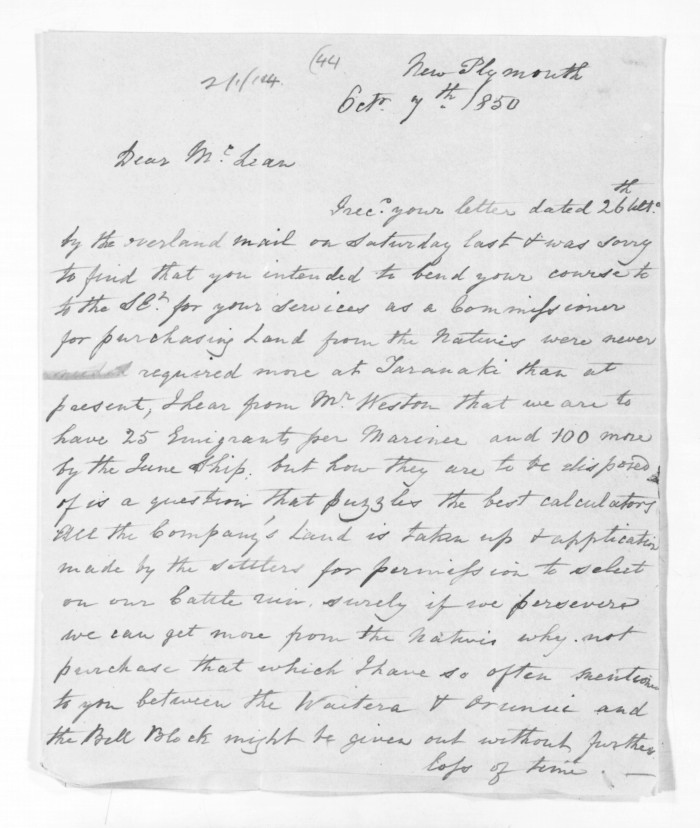 (44
2/1/144.
New Plymouth
Octr. 7th. 1850
Dear Mc. Lean
I recd. your letter dated 26th ulto.
by the overland mail on Saturday last & was sorry
to find that you intended to bend your course to
to the Sd. for your services as a Commissioner
for purchasing Land from the Natives were never
required more at Taranaki than at
present, I hear from Mr. Weston that we are to
have 25 Emigrants per Mariner and 100 more
by the June Ship, but how they are to be disposed
of is a question that puzzles the best calculators
All the Company's Land is taken up & application
made by the settlers for permission to select
on our Cattle run. surely if we persevere
we can get more from the Natives why. not
purchase that which I have so often mention
to you between the Waitera & and
the Bell Block might be given out without further
loss of time. —